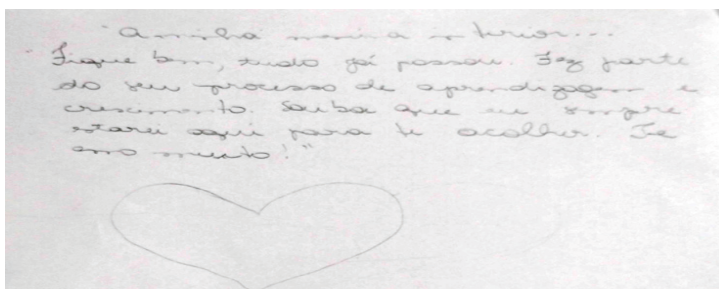 "A minha menina interior...
Fique bem, tudo já passou. Fez parte
do seu processo de aprendizagem e
crescimento. Saiba que eu sempre
estarei aqui para te acolher. Te
amo muito!"